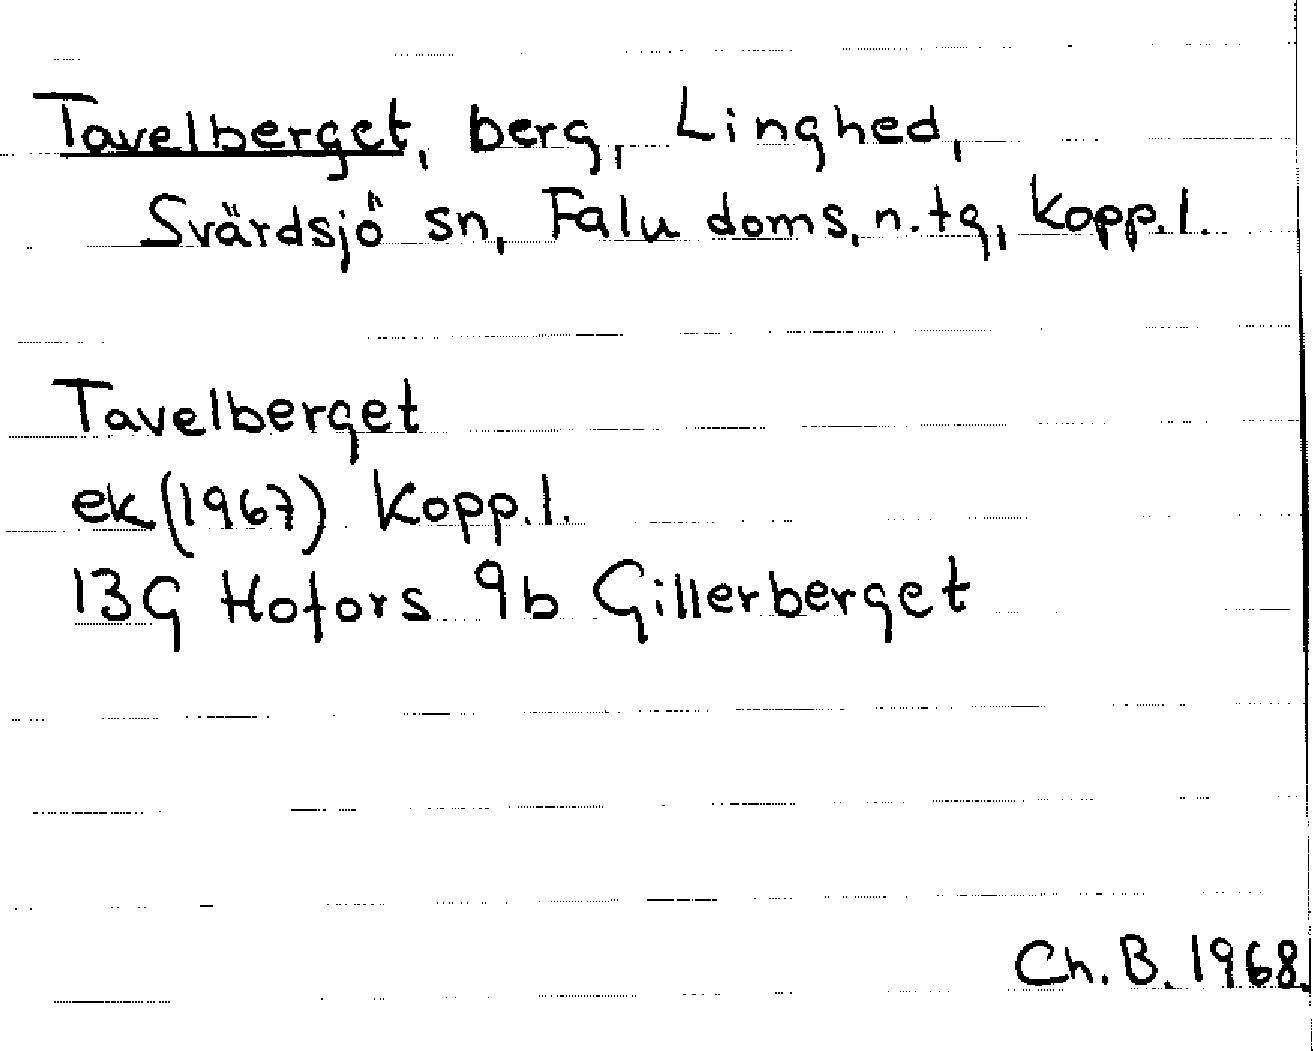 Tavelberget, berg, Linghed,
Svärdsjö sn, Falu doms. n. tg, Kopp. l.
Tavelberget
ek (1967) Kopp. l.
13G Hofors 9b Gillerberget
Ch. B. 1968.